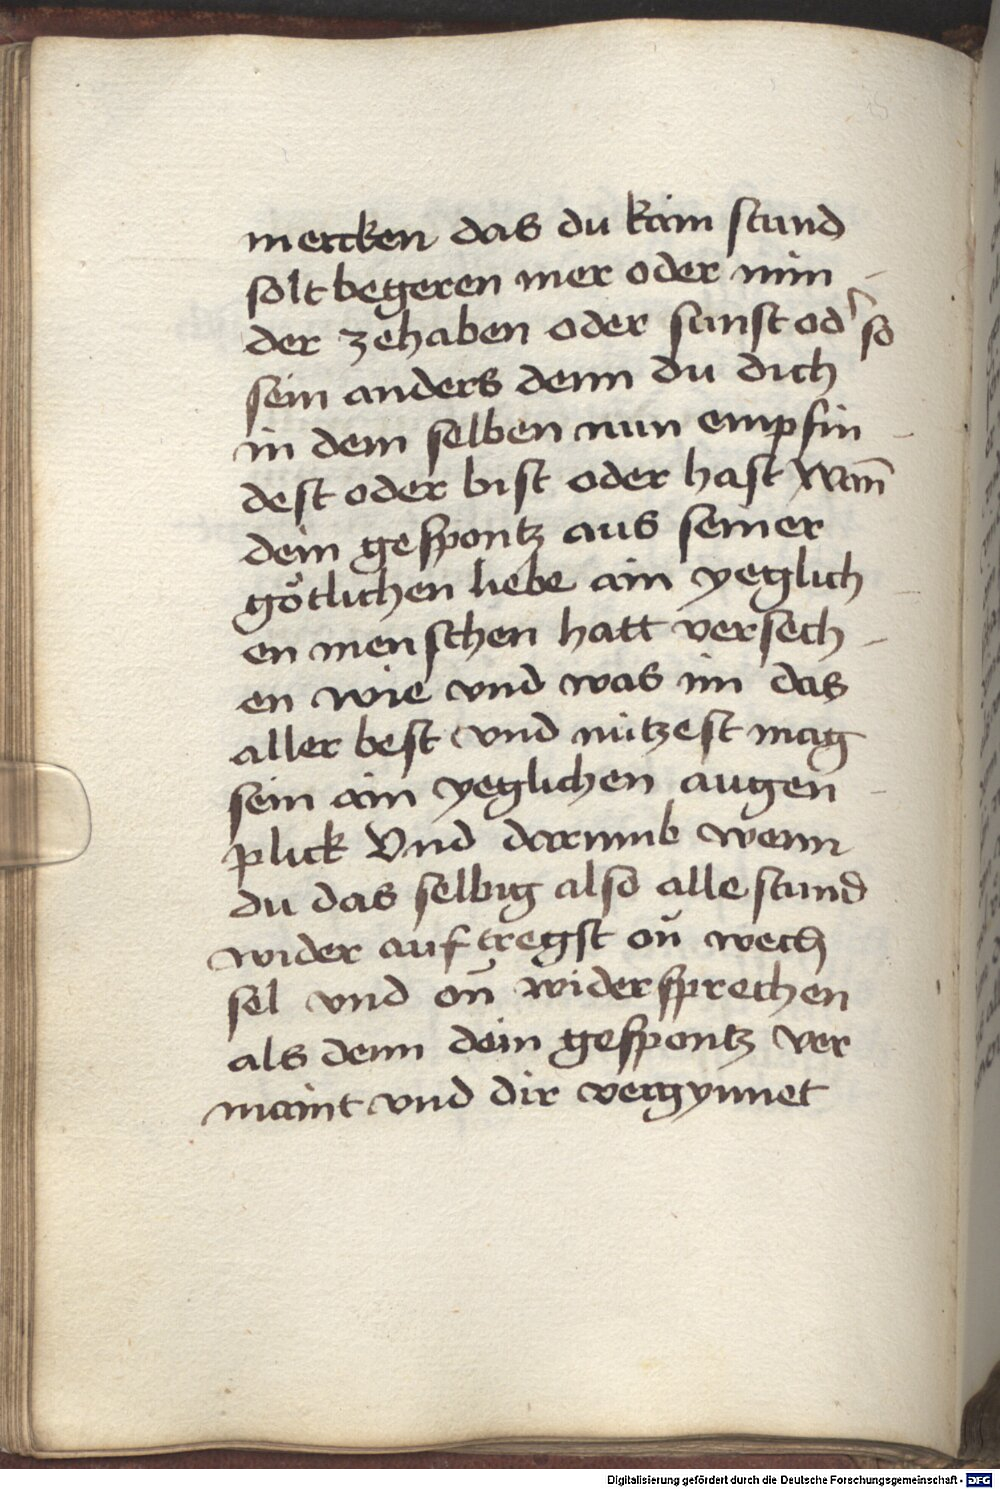 mercken das du kain stund
solt begeren mer oder min -
der zehaben oder sunst od' so
sein anders denn du dich
in dem selben nun empfin -
dest oder bist oder hast Wan̄
dein gespontz aus seiner
götlichen liebe ain yeglich -
en menschen hatt versech -
en wie vnd was im das
aller best vnd nützest mag
sein ain yeglichen augen -
plick Vnd darumb wenn
du das selbig also alle stund
wider auf tregst on̄ wech
sel vnd on̄ widersprechen
als denn dein gespontz ver
maint vnd dir vergynnet
Digitalisierung gefördert durch die Deutsche Forschungsgemeinschaft - DFG